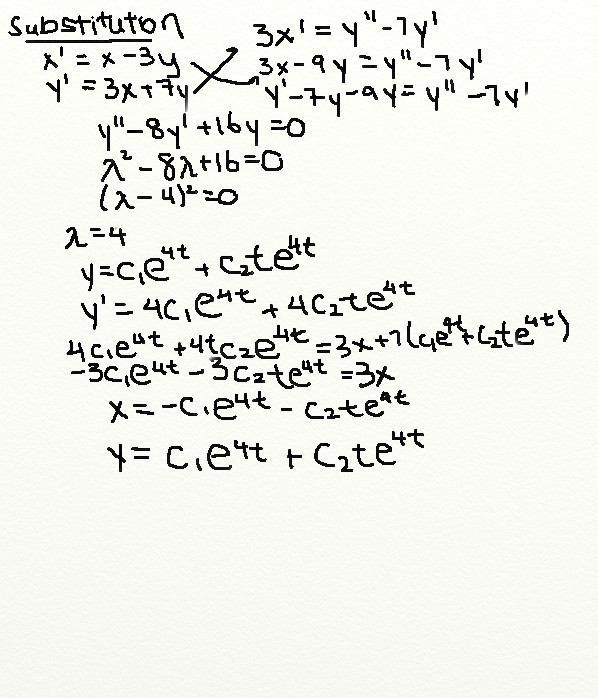 Substitution
x' = x - 3y
y' = 3x + 7y
3x' = y'' - 7y'
3x - 9y = y'' - 7y'
y' - 7y - 9y = y'' - 7y'
y'' - 8y' + 16y = 0
λ² - 8λ + 16 = 0
(λ - 4)² = 0
λ = 4
y = c₁e^4t + c₂te^4t
y' = 4c₁e^4t + 4c₂te^4t
4c₁e^4t + 4tc₂e^4t = 3x + 7(c₁e^4t + c₂te^4t)
-3c₁e^4t - 3c₂te^4t = 3x
x = -c₁e^4t - c₂te^4t
y = c₁e^4t + c₂te^4t